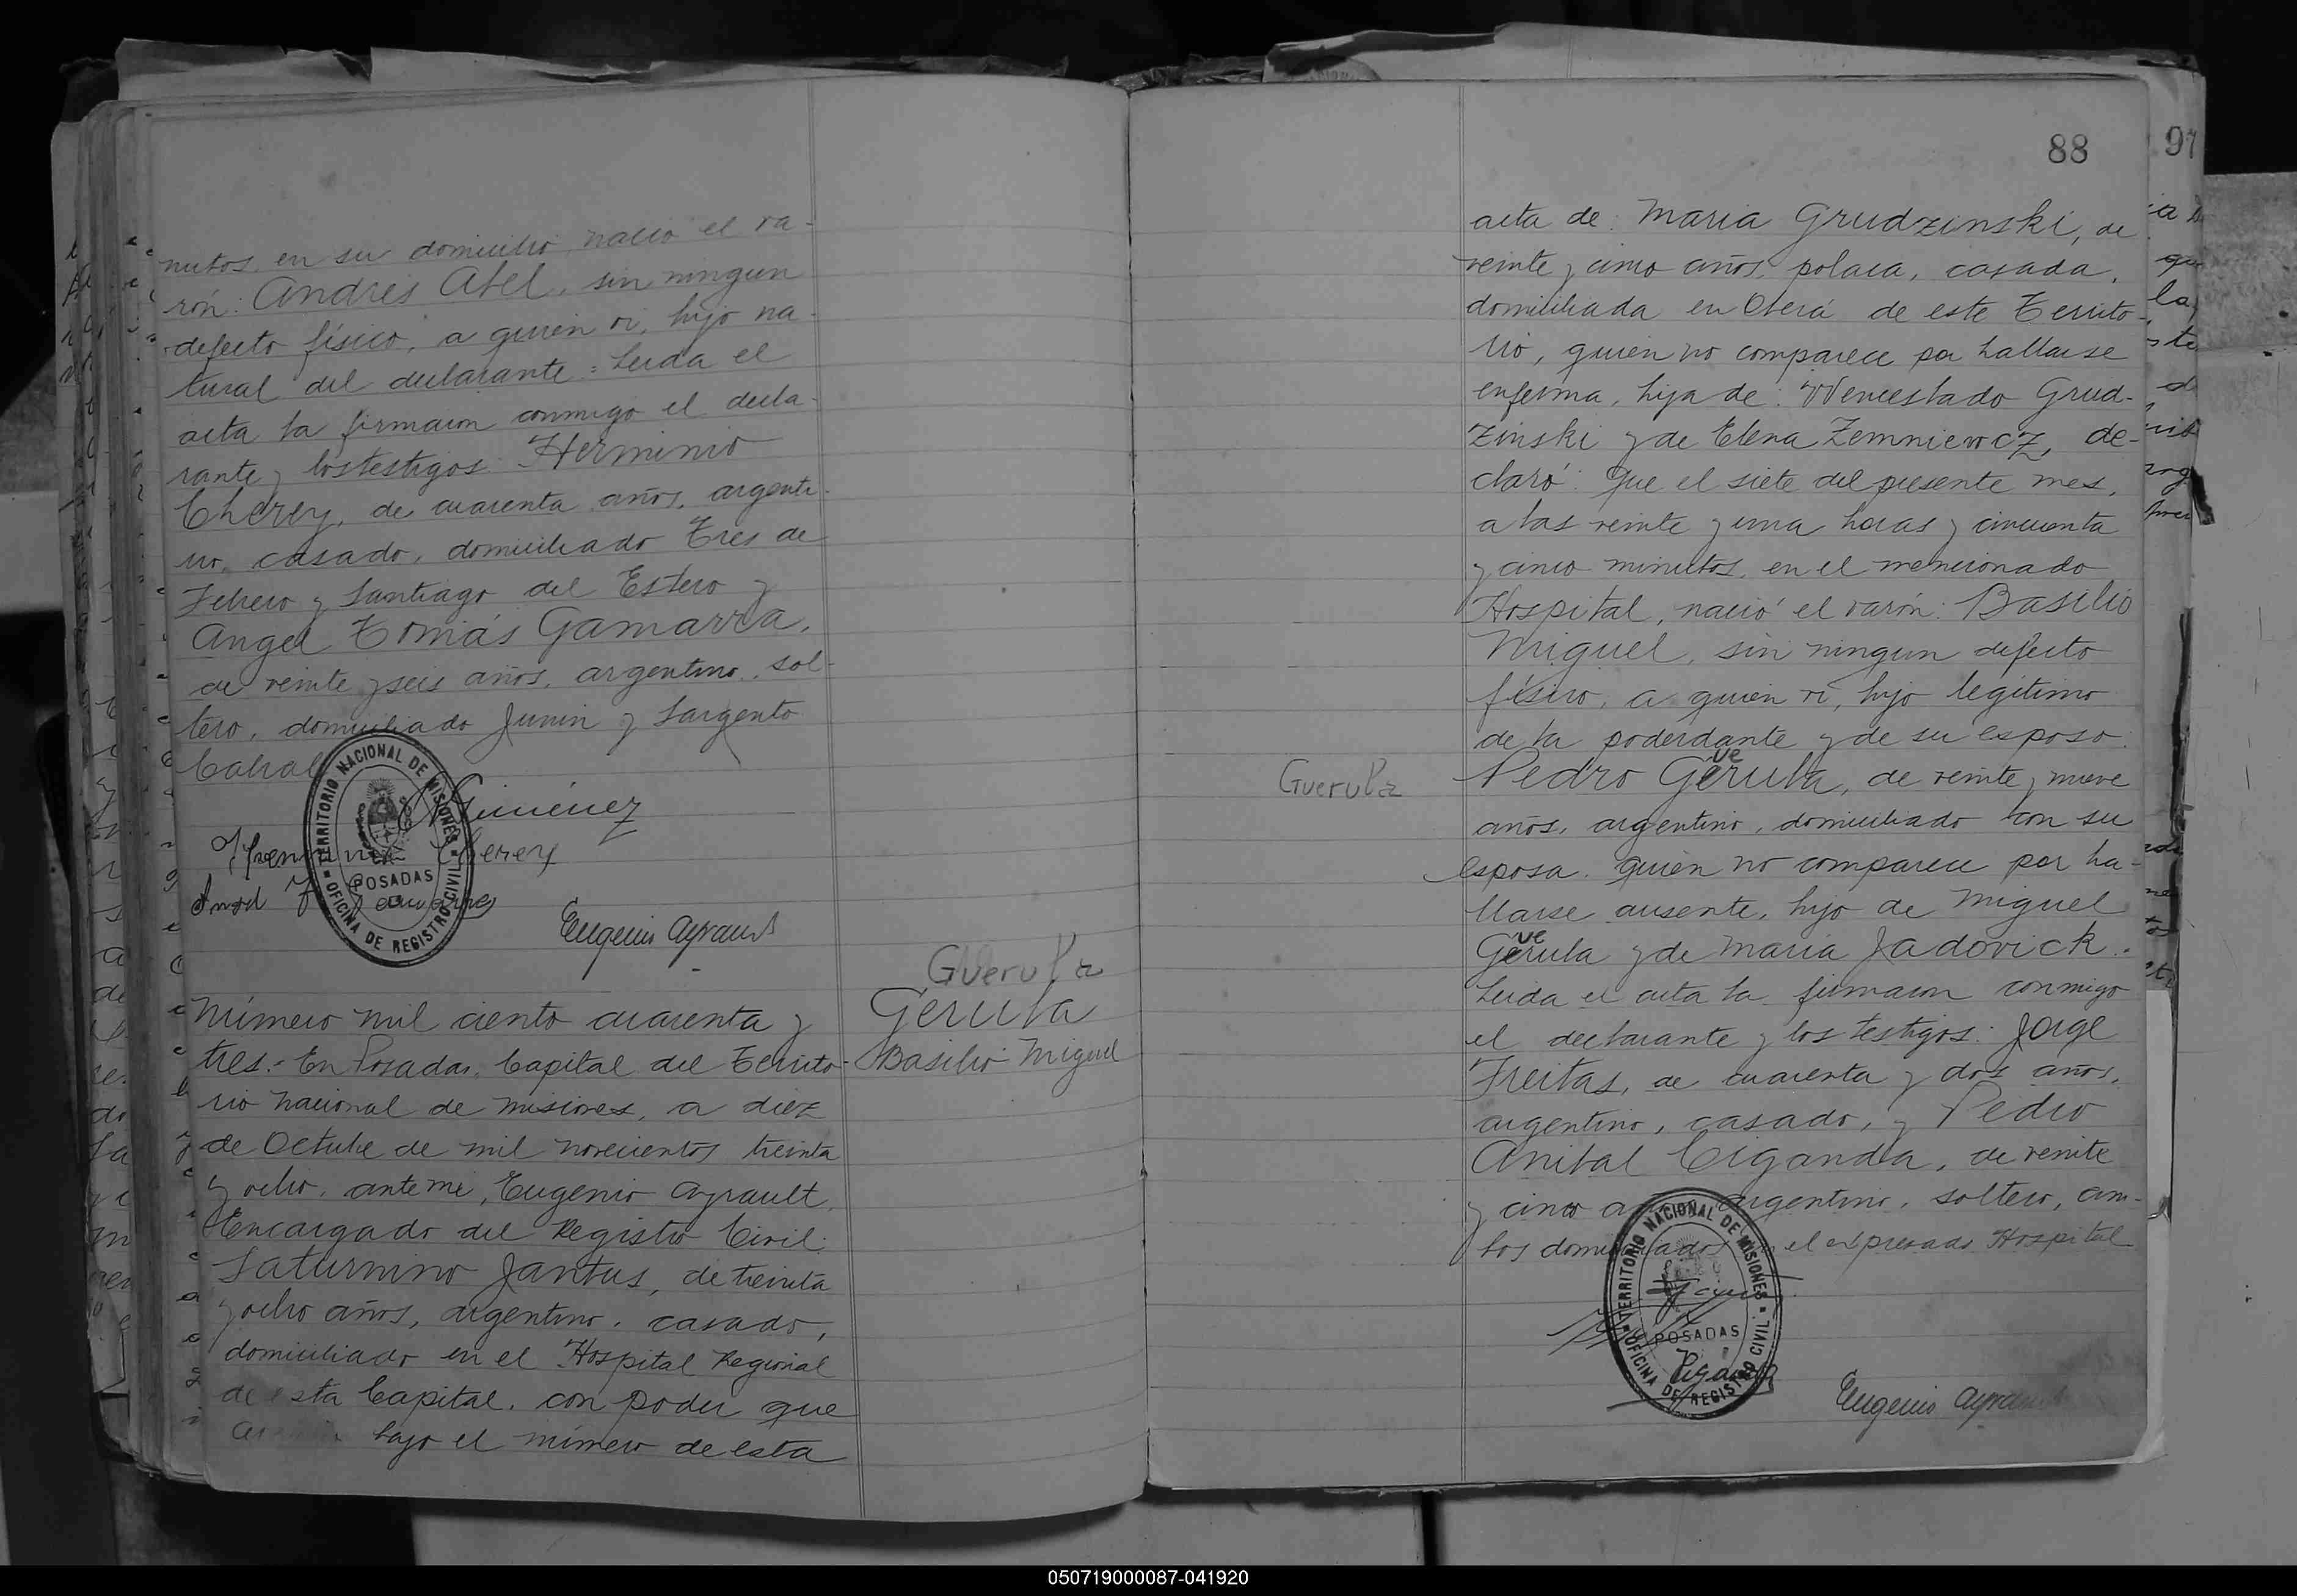 nutos, en su domicilio nació el va-
rón: Andrés Abel, sin ningun
defecto físico, a quien vi, hijo na-
tural del declarante = Leida el
acta la firmaron conmigo el decla-
rante y los testigos: Herminio
Cherey, de cuarenta años, argenti-
no, casado, domiciliado Tres de
Febrero y Santiago del Estero y
Angel Tomás Gamarra,
de veinte y seis años, argentino, sol-
tero, domiciliado Junin y Sargento
Cabral
Giménez
Cherey
TERRITORIO NACIONAL DE MISIONES
POSADAS
OFICINA DE REGISTRO CIVIL
Eugenio Ayrault
Guerula
Gerula
Basilio Miguel
Número mil ciento cuarenta y
tres.- En Posadas, Capital del Territo-
rio Nacional de Misiones, a diez
de Octubre de mil novecientos treinta
y ocho, ante mi, Eugenio Ayrault,
Encargado del Registro Civil;
Saturnino Jantus, de treinta
y ocho años, argentino, casado,
domiciliado en el Hospital Regional
de esta Capital, con poder que
bajo el número de esta
88
97
acta de: Maria Grudzinski, de
veinte y cinco años, polaca, casada,
domiciliada en Oberá de este Territo-
rio, quien no comparece por hallarse
enferma, hija de: Wenceslado Grud-
zinski y de Elena Zemniewcz, de-
claró: Que el siete del presente mes,
a las veinte y una horas y cincuenta
y cinco minutos, en el mencionado
Hospital, nació el varón: Basilio
Miguel, sin ningun defecto
físico, a quien vi, hijo legítimo
de la poderdante y de su esposo:
ue
Guerula
Pedro Gerula, de veinte y nueve
años, argentino, domiciliado con su
esposa, quien no comparece por ha-
llarse ausente, hijo de Miguel
ue
Gerula y de Maria Jadovick.
Leida el acta la firmaron conmigo
el declarante y los testigos: Jorge
Freitas, de cuarenta y dos años,
argentino, casado, y Pedro
Anibal Ciganda, de veinte
y cinco argentino, soltero, am-
bos domiciliados en el expresado Hospital
TERRITORIO NACIONAL DE MISIONES
POSADAS
OFICINA DE REGISTRO CIVIL
Eugenio Ayrault
050719000087-041920